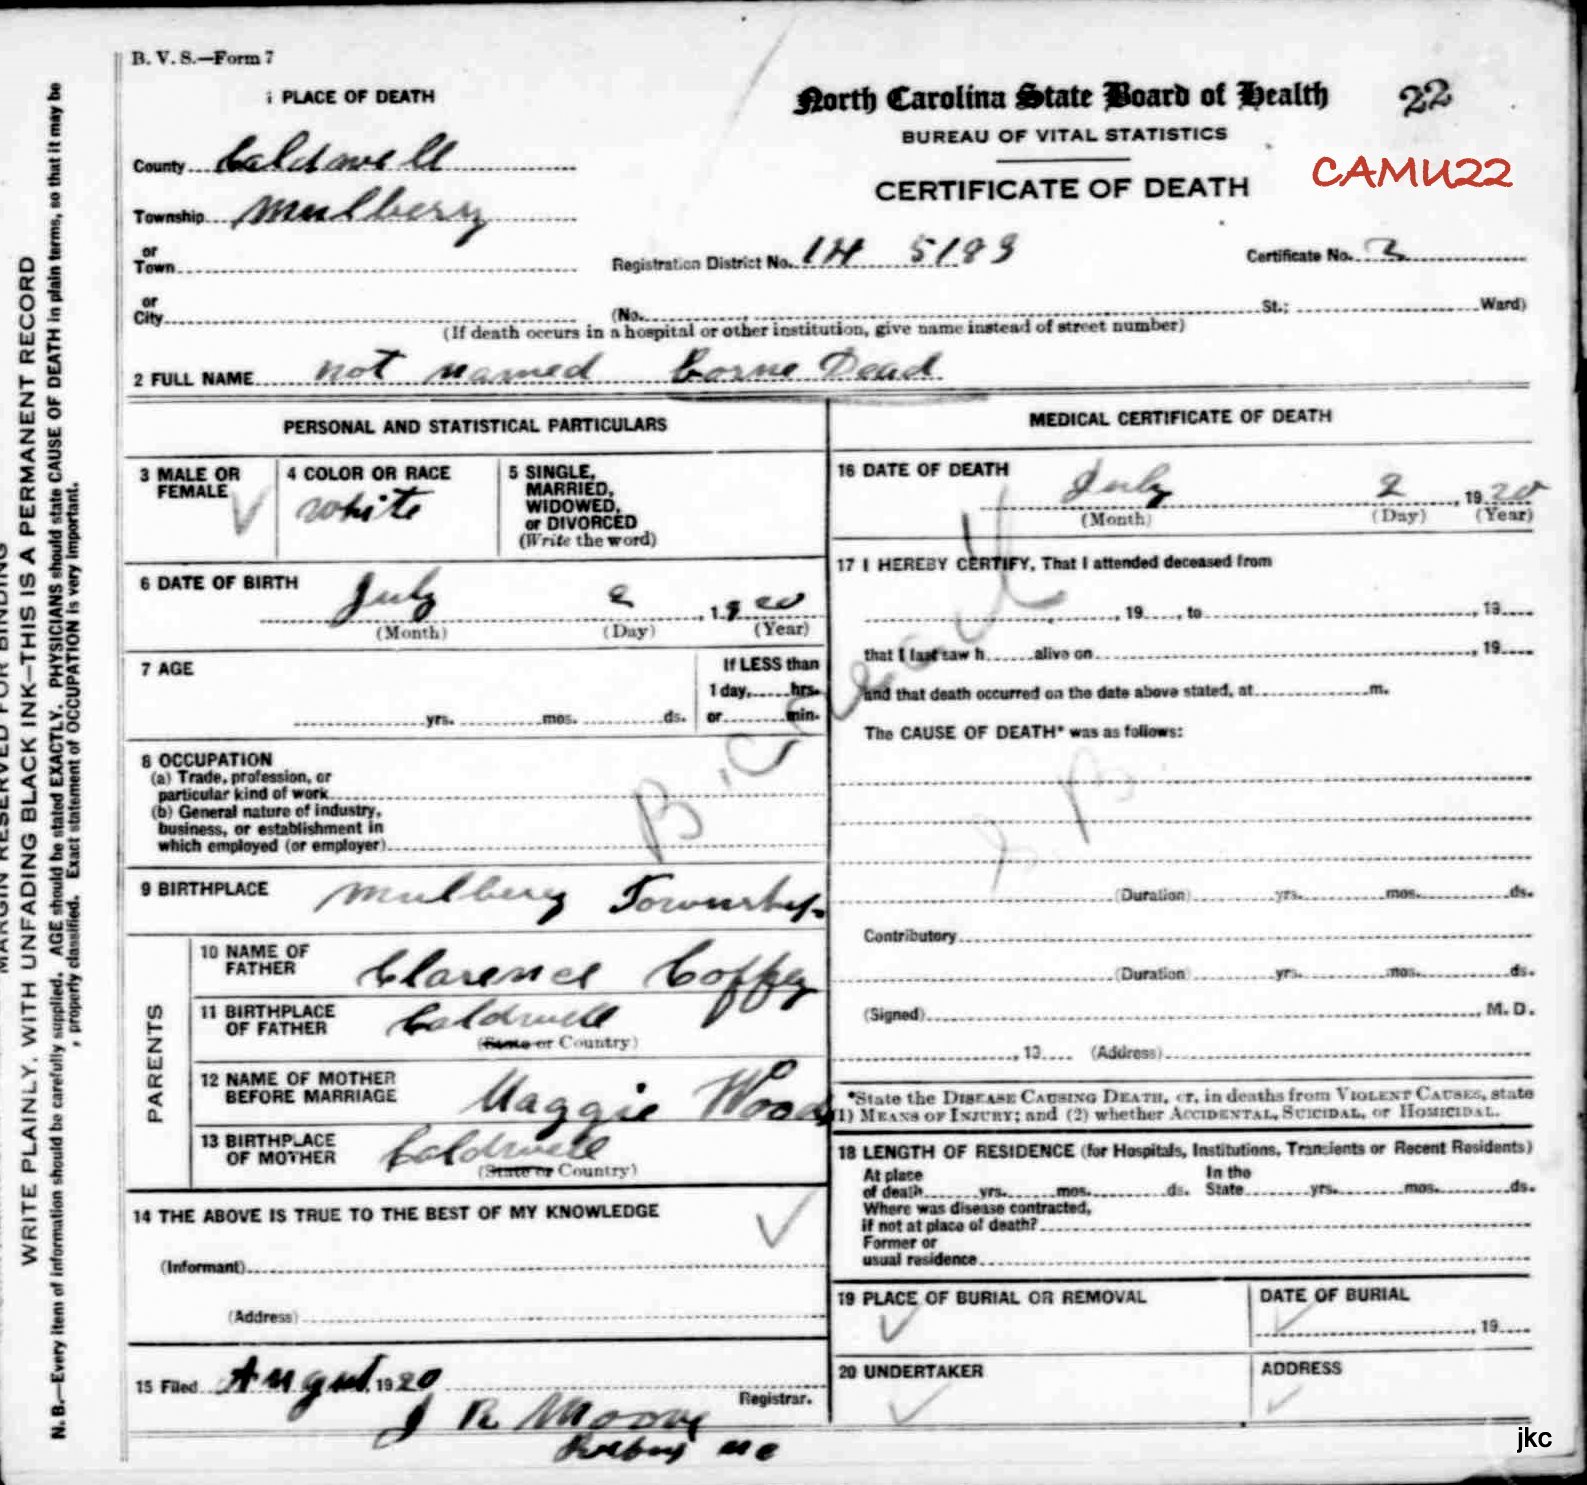 B. V. S.—Form 7
1 PLACE OF DEATH
North Carolina State Board of Health
22
BUREAU OF VITAL STATISTICS
CAMU22
CERTIFICATE OF DEATH
County Caldwell
Township Mulberry
or
Town
Registration District No. 14 5183
Certificate No. 2
or
City
(No. St.; Ward)
(If death occurs in a hospital or other institution, give name instead of street number)
2 FULL NAME not named Borne Dead
PERSONAL AND STATISTICAL PARTICULARS
3 MALE OR
FEMALE
4 COLOR OR RACE
white
5 SINGLE,
MARRIED,
WIDOWED,
or DIVORCED
(Write the word)
6 DATE OF BIRTH July 2, 1920
(Month) (Day) (Year)
7 AGE
If LESS than
1 day, hrs.
yrs. mos. ds. or min.
8 OCCUPATION
(a) Trade, profession, or
particular kind of work
(b) General nature of industry,
business, or establishment in
which employed (or employer)
9 BIRTHPLACE Mulbery Township
PARENTS
10 NAME OF
FATHER
Clarence Coffey
11 BIRTHPLACE
OF FATHER
Caldwell
(State or Country)
12 NAME OF MOTHER
BEFORE MARRIAGE
Maggie Woods
13 BIRTHPLACE
OF MOTHER
Caldwell
(State or Country)
14 THE ABOVE IS TRUE TO THE BEST OF MY KNOWLEDGE
(Informant)
(Address)
15 Filed August, 1920
Registrar.
J R Moore
MEDICAL CERTIFICATE OF DEATH
16 DATE OF DEATH
July 2, 1920
(Month) (Day) (Year)
17 I HEREBY CERTIFY, That I attended deceased from
, 19 , to , 19
that I last saw h alive on , 19
and that death occurred on the date above stated, at m.
The CAUSE OF DEATH* was as follows:
B. Dead
S. B.
(Duration) yrs. mos. ds.
Contributory
(Duration) yrs. mos. ds.
(Signed) , M. D.
, 19 (Address)
*State the DISEASE CAUSING DEATH, or, in deaths from VIOLENT CAUSES, state
(1) MEANS OF INJURY; and (2) whether ACCIDENTAL, SUICIDAL, or HOMICIDAL.
18 LENGTH OF RESIDENCE (for Hospitals, Institutions, Transients or Recent Residents)
At place
of death yrs. mos. ds.
In the
State yrs. mos. ds.
Where was disease contracted,
if not at place of death?
Former or
usual residence
19 PLACE OF BURIAL OR REMOVAL
DATE OF BURIAL
, 19
20 UNDERTAKER
ADDRESS
jkc
MARGIN RESERVED FOR BINDING
WRITE PLAINLY, WITH UNFADING BLACK INK—THIS IS A PERMANENT RECORD
N. B.—Every item of information should be carefully supplied. AGE should be stated EXACTLY. PHYSICIANS should state CAUSE OF DEATH in plain terms, so that it may be
properly classified. Exact statement of OCCUPATION is very important.